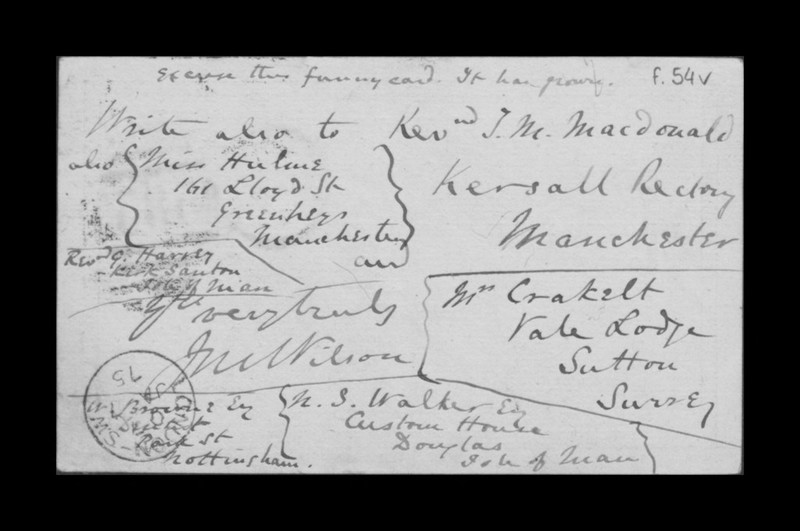 Excuse this funny card. It has grown.
f. 54v
Write also to Revnd T. M. Macdonald
Kersall Rectory
Manchester
also Miss Hulme
161 Lloyd St
Greenheys
Manchester
and
Revd G. Harvey
Kirk Santon
Isle of Man
Mrs Crakelt
Vale Lodge
Sutton
Surrey
Yrs
very truly
J M Wilson
Browne Esq
Park St
Nottingham.
N. S. Walker Esq
Custom House
Douglas
Isle of Man
LONDON S.W
JA
75